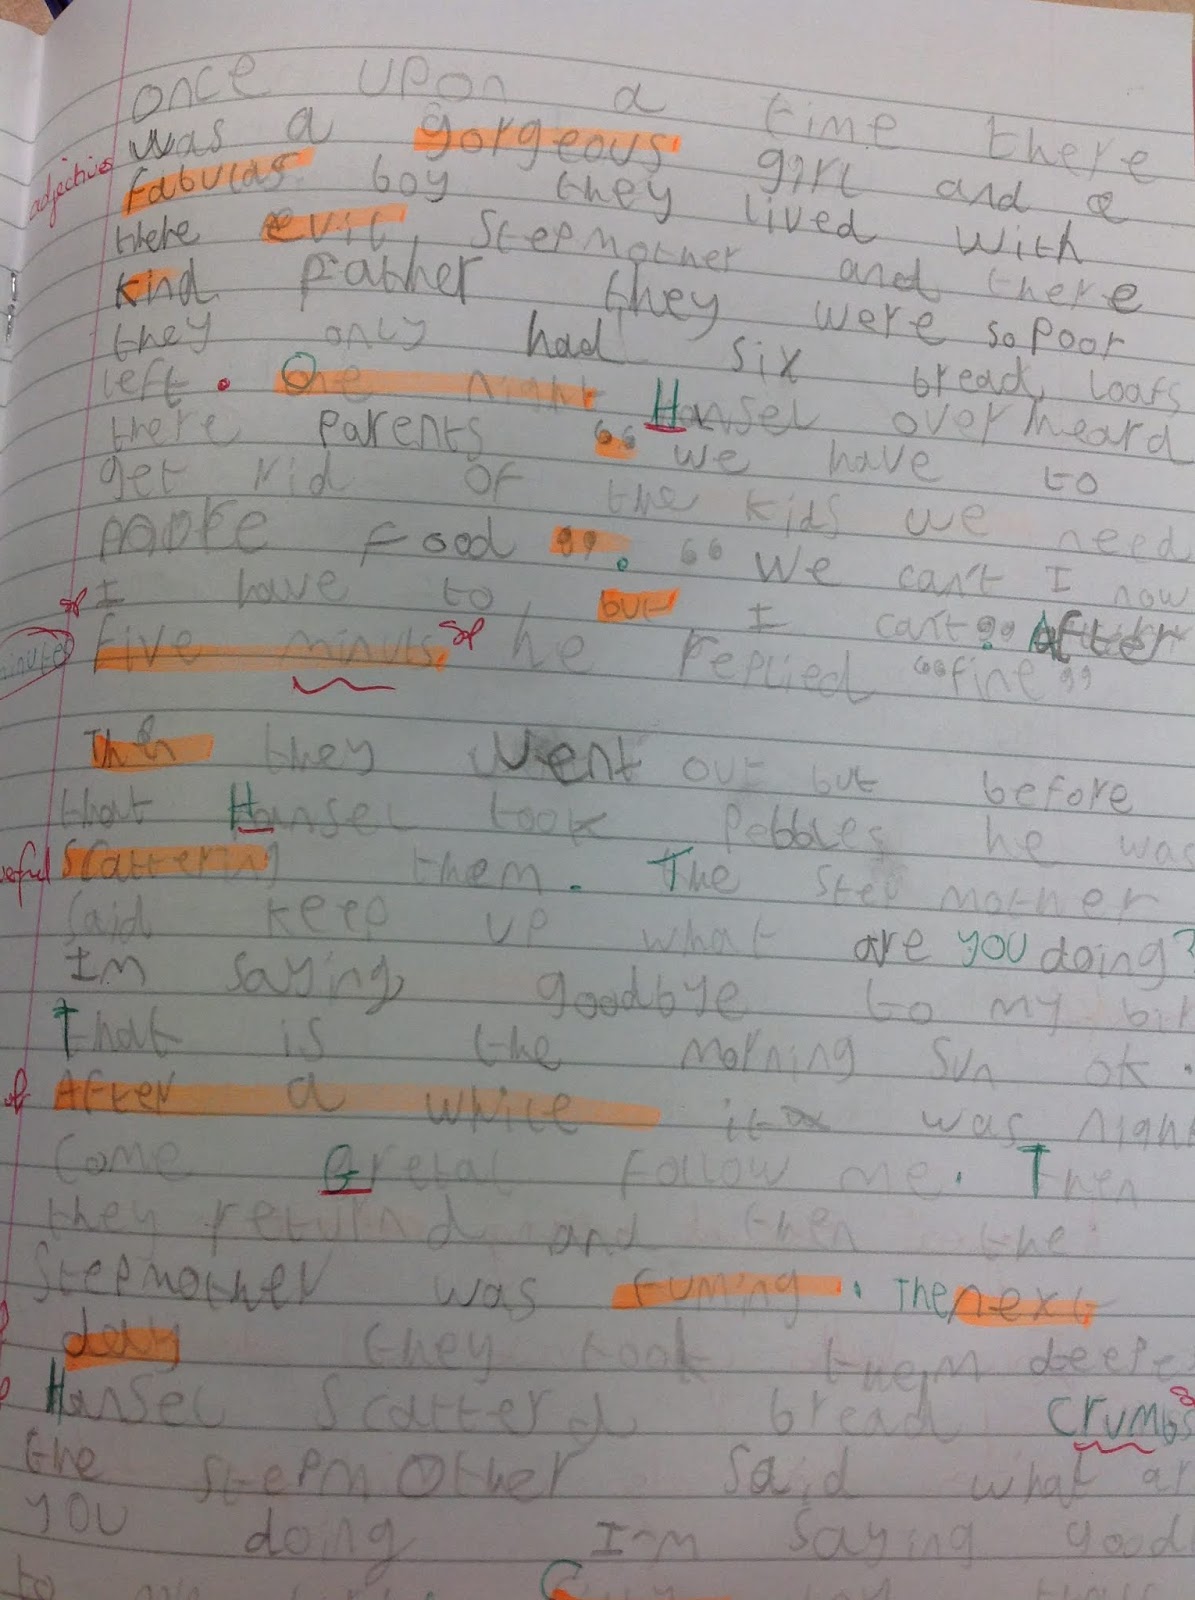 once upon a time there
was a gorgeous girl and a
adjectives
fabulas boy they lived with
there evil, stepmother and there
kind father they were so poor
they only had six bread loafs
left. One night Hansel overheard
there parents 66 we have to
get rid of the kids we need
more food 99. 66 We can't I now
sp I have to, but I can't 99. After
minutes five minuts, sp he replied 66 fine 99
Then they went out but before
that Hansel took pebbles he was
scattering them. The step mother
said keep up what are you doing?
Im saying goodbye to my bir
That is the morning sun ok.
After a while it was nigh
Come Gretal follow me. Then
they returnd and then the
stepmother was fuming. The next
day they took them deepe
Hansel scatterd bread crumbs
the stepmother said what ar
you doing I'm saying good
to